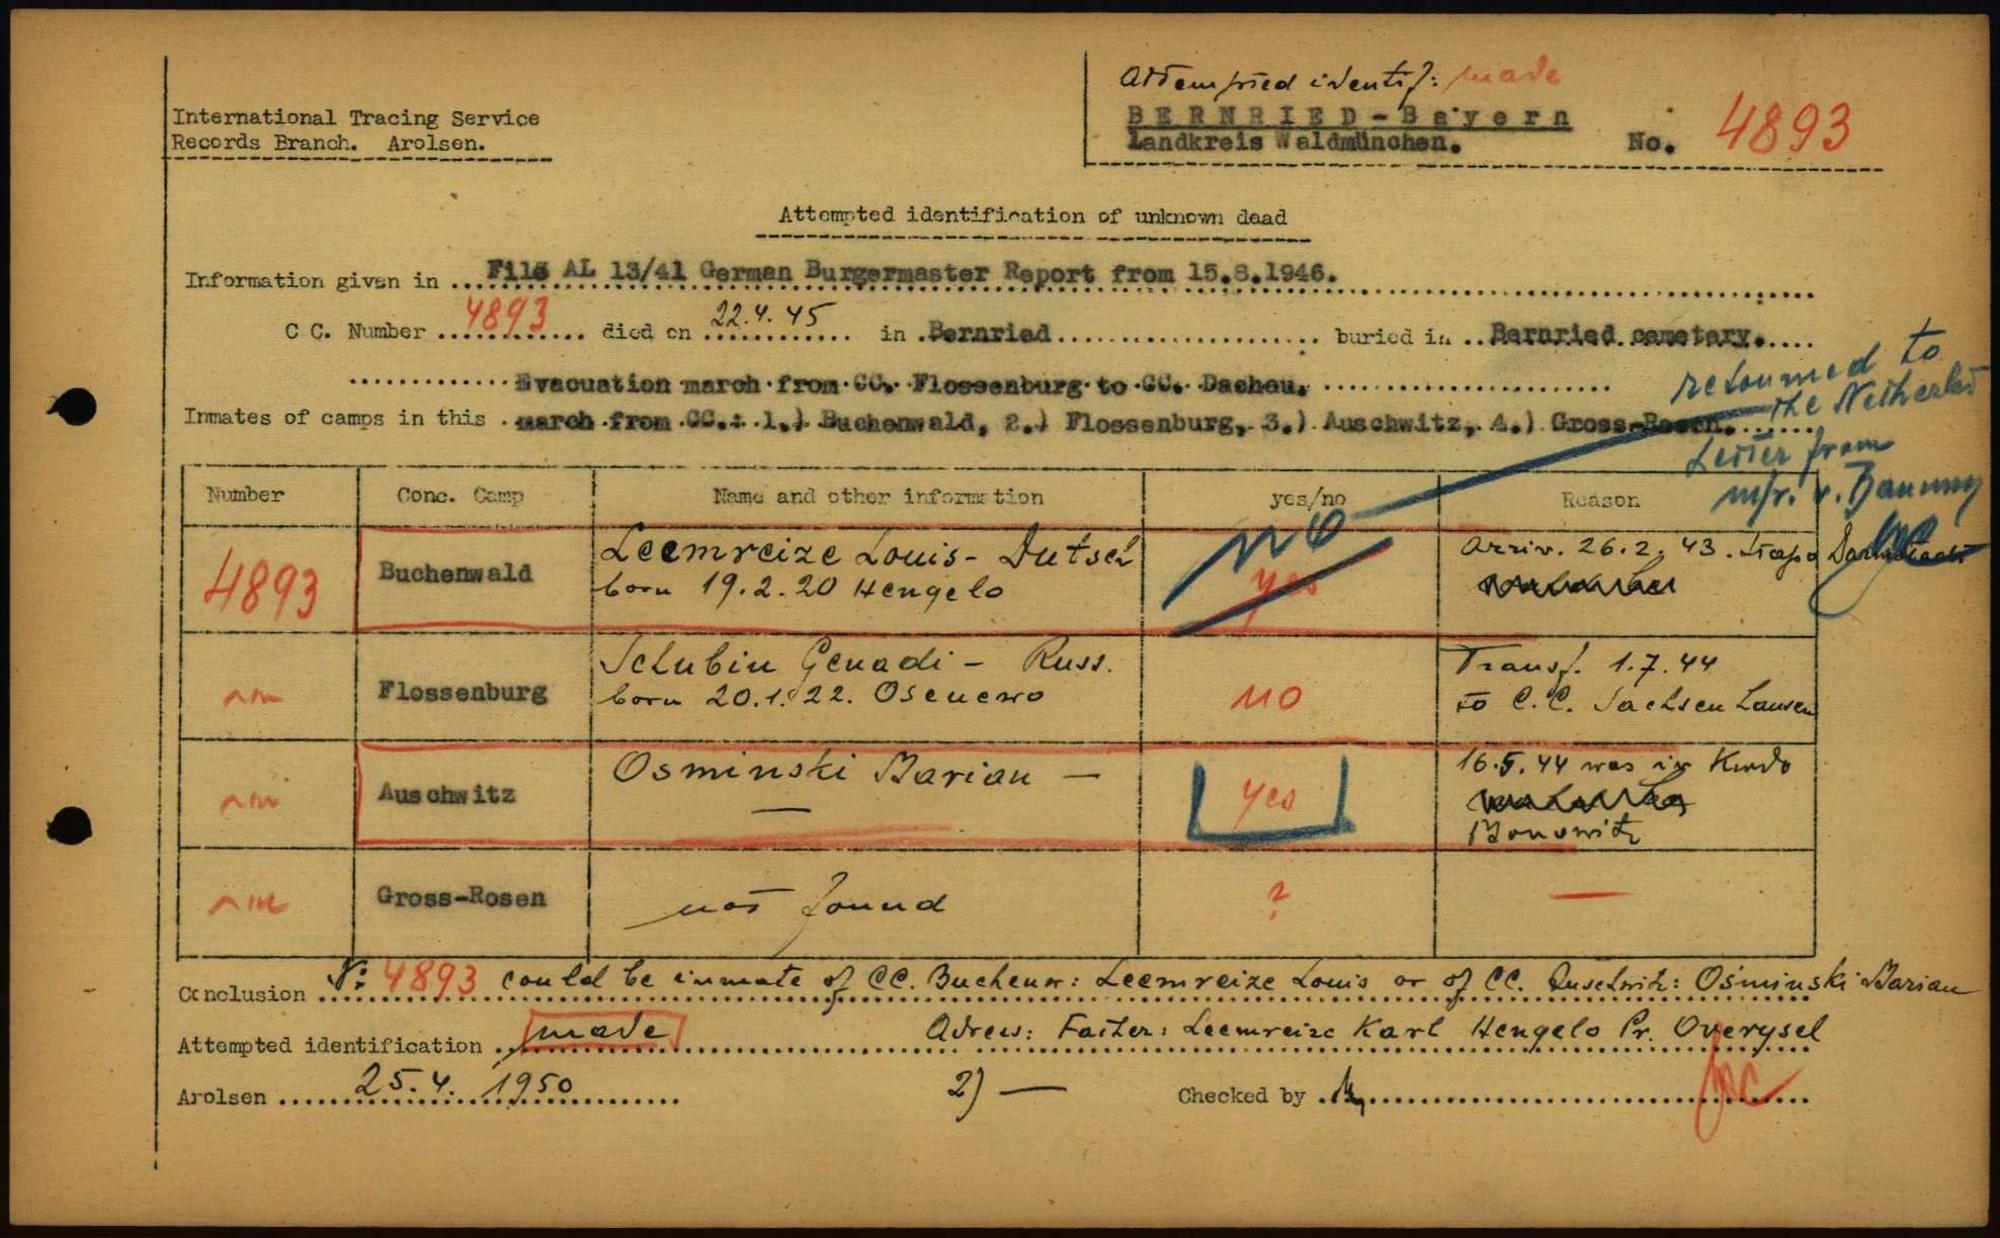 Attempted identif: made
International Tracing Service
Records Branch. Arolsen.
BERNRIED-Bayern
Landkreis Waldmünchen. No. 4893
Attempted identification of unknown dead
Information given in File AL 13/41 German Burgermaster Report from 15.8.1946.
C C. Number 4893 died on 22.4.45 in Bernried buried in Bernried cemetary.
Evacuation march from CC. Flossenburg to CC. Dachau.
Inmates of camps in this march from CC.: 1.) Buchenwald, 2.) Flossenburg, 3.) Auschwitz, 4.) Gross-Rosen.
returned to
the Netherlds
Letter from
Number Conc. Camp Name and other information yes/no Reason
4893 Buchenwald Leemreize Louis - Dutsch no Arriv. 26.2.43. Stapo
born 19.2.20 Hengelo yes
Flossenburg Schubin Genadi - Russ. no Transf. 1.7.44
born 20.1.22. Osenewo to C.C. Sachsenhausen
Auschwitz Osminski Marian - yes 16.5.44 was in
Monowitz
Gross-Rosen not found ? —
Conclusion N: 4893 could be inmate of CC. Buchenw: Leemreize Louis or of CC. Auschwitz: Osminski Marian
Attempted identification made Adress: Father: Leemreize Karl Hengelo Pr. Overysel
Arolsen 25.4. 1950 2) — Checked by